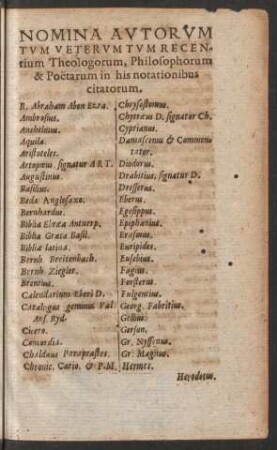 NOMINA AVTORVM
TVM VETERVM TVM RECEN-
tium Theologorum, Philosophorum
& Poëtarum in his notationibus
citatorum.
R. Abraham Aben Ezra.
Ambrosius.
Anshelmus.
Aquila.
Aristoteles.
Artopœus signatur ART.
Augustinus.
Basilius.
Beda Anglosaxo.
Bernhardus.
Biblia Ebræa Antuerp.
Biblia Græca Basil.
Bibliæ latinæ.
Bernh. Breitenbach.
Bernh. Ziegler.
Brentius.
Calendarium Eberi D.
Catalogus gemmis Val
Ans. Ryd.
Cicero.
Concordiæ.
Chaldæus Paraphrastes.
Chronic. Cario. & P.M.
Chrysostomus.
Chytræus D. signatur Ch.
Cyprianus.
Damascenus & Commen-
tator.
Diodorus.
Drabitius, signatur D.
Dresserus.
Eberus.
Egesippus.
Epiphanius.
Erasmus.
Euripides.
Eusebius.
Fagius.
Forsterus.
Fulgentius.
Georg. Fabritius.
Gellius.
Gerson.
Gr. Nyssenus.
Gr. Magnus.
Hermes.
Herodotus.